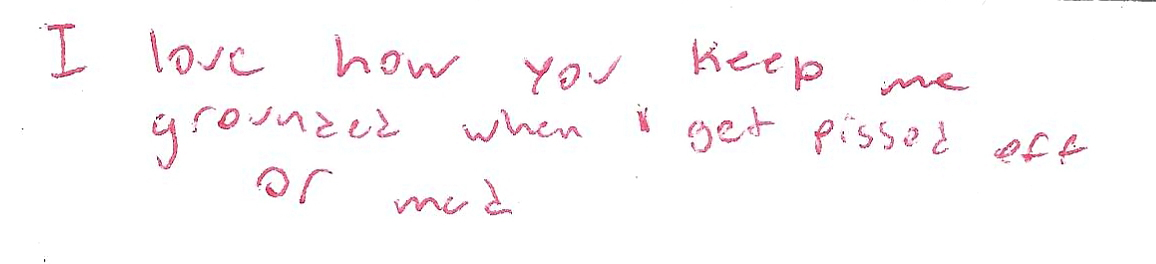 I love how you keep me
grounded when i get pissed off
or mad